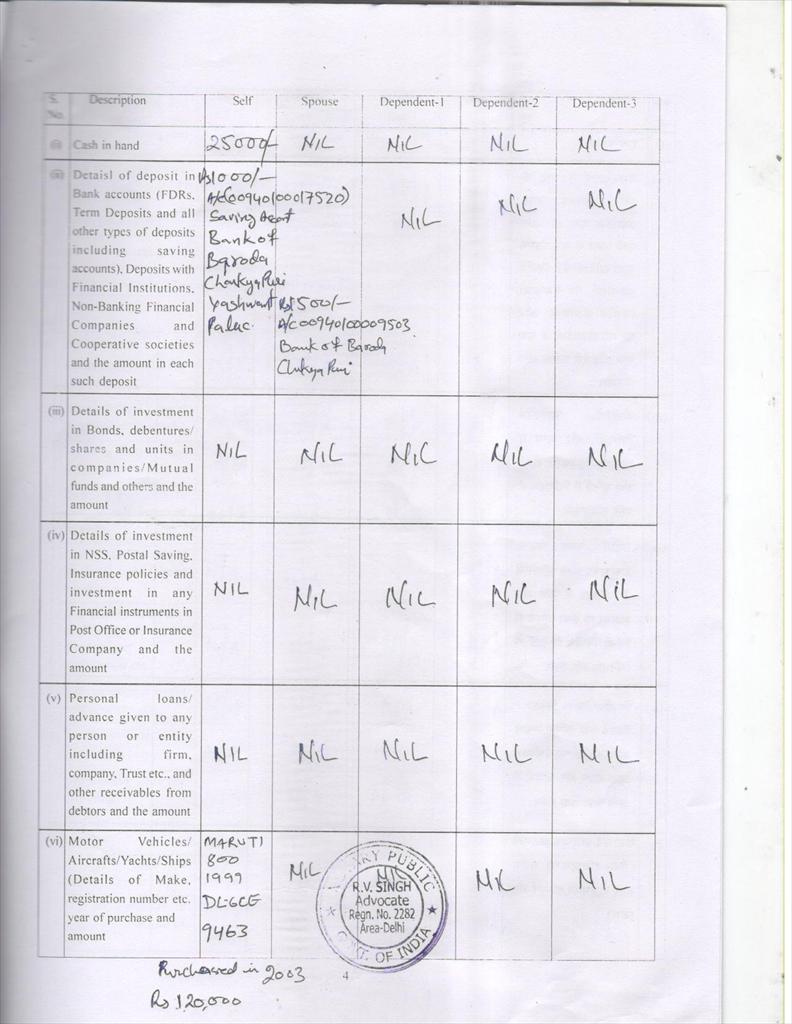 S. No. Description Self Spouse Dependent-1 Dependent-2 Dependent-3
(i) Cash in hand 25000/- NIL NIL NIL NIL
(ii) Detaisl of deposit in
Bank accounts (FDRs,
Term Deposits and all
other types of deposits
including saving
accounts), Deposits with
Financial Institutions,
Non-Banking Financial
Companies and
Cooperative societies
and the amount in each
such deposit
Rs1000/-
A/C(00940100017520)
Saving
Bank of
Baroda
Yashwant
Rs1500/-
A/C 00940100009503
Bank of Baroda
NIL NIL NIL
(iii) Details of investment
in Bonds, debentures/
shares and units in
companies/Mutual
funds and others and the
amount
NIL NIL NIL NIL NIL
(iv) Details of investment
in NSS, Postal Saving,
Insurance policies and
investment in any
Financial instruments in
Post Office or Insurance
Company and the
amount
NIL NIL NIL NIL NIL
(v) Personal loans/
advance given to any
person or entity
including firm,
company, Trust etc., and
other receivables from
debtors and the amount
NIL NIL NIL NIL NIL
(vi) Motor Vehicles/
Aircrafts/Yachts/Ships
(Details of Make,
registration number etc.
year of purchase and
amount
MARUTI
800
1999
DL-6CE
9463
NIL NIL NIL NIL
NOTARY PUBLIC
R.V. SINGH
Advocate
Regn. No. 2282
Area-Delhi
GOVT. OF INDIA
Purchased in 2003
4
Rs 120,000